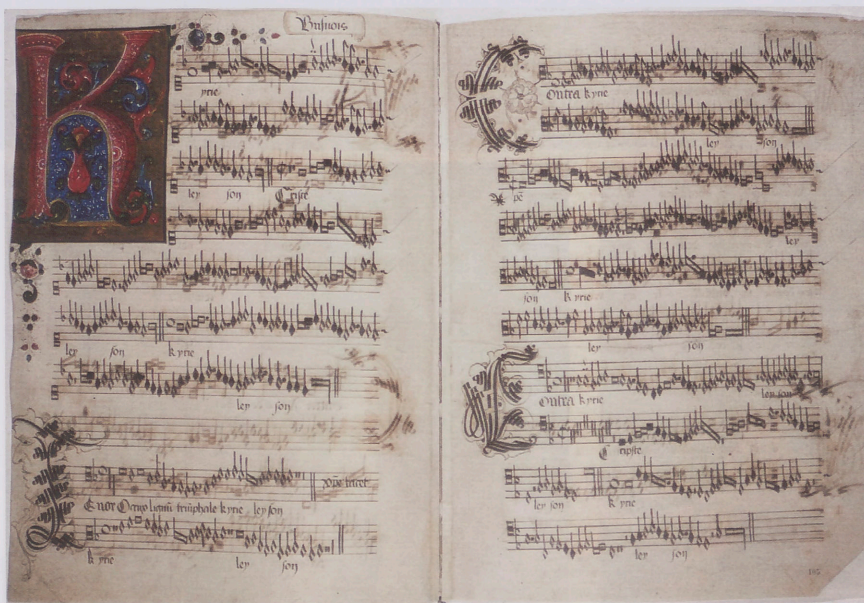 Busnois
K
yrie
ley son Criste
ley son kyrie
ley son
xpe tacet
Tenor
kyrie ley son
kyrie ley son
Contra kyrie
ley son
xpe
ley
son kyrie
ley son
Contra kyrie
ley son
Criste
ley son kyrie
ley son